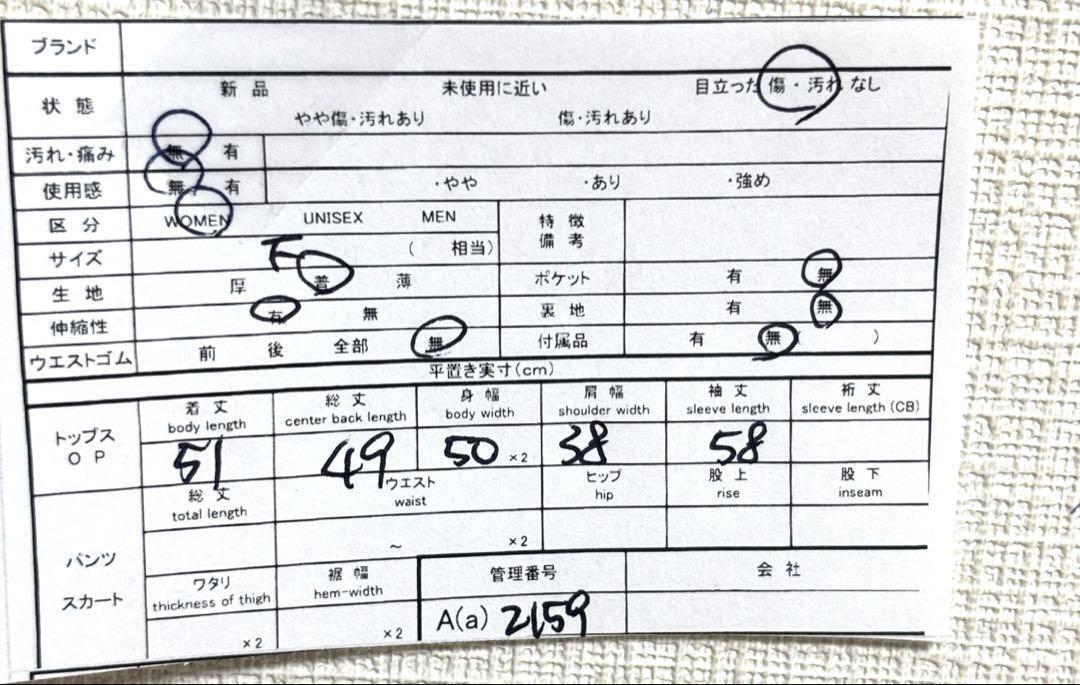 ブランド
状態 新品 未使用に近い 目立った傷・汚れなし
やや傷・汚れあり 傷・汚れあり
汚れ・痛み 無 有
使用感 無 有 ・やや ・あり ・強め
区分 WOMEN UNISEX MEN 特徴備考
サイズ F ( 相当)
生地 厚 普 薄 ポケット 有 無
伸縮性 有 無 裏地 有 無
ウエストゴム 前 後 全部 無 付属品 有 無 ( )
平置き実寸(cm)
トップス OP
着丈 総丈 身幅 肩幅 袖丈 裄丈
body length center back length body width shoulder width sleeve length sleeve length (CB)
51 49 50 ×2 38 58
パンツ スカート
総丈 ウエスト ヒップ 股上 股下
total length waist hip rise inseam
~ ×2
ワタリ 裾幅 管理番号 会社
thickness of thigh hem-width
×2 ×2 A(a) 2159